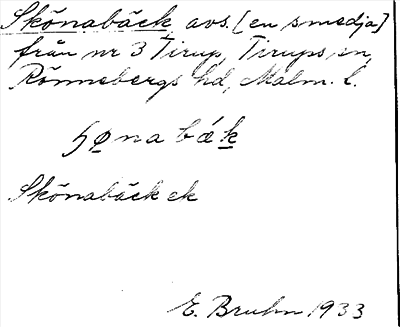 Skönabäck, avs. [en smedja]
från nr 3 Tirup, Tirups sn,
Rönnebergs hd, Malm. l.
ʃønabæk
Skönabäck ek
E. Bruhn 1933